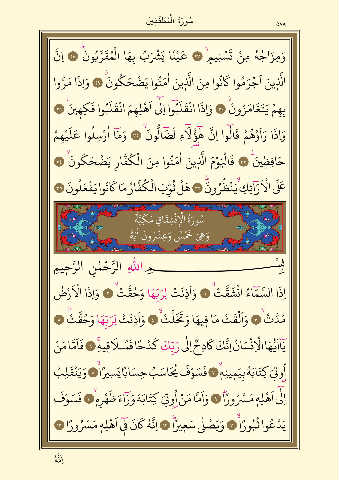 سُورَةُ الْمُطَفِّفِينَ
٥٨٩
وَمِزَاجُهُ مِنْ تَسْنِيمٍۙ ﴿٢٧﴾ عَيْنًا يَشْرَبُ بِهَا الْمُقَرَّبُونَۜ ﴿٢٨﴾ اِنَّ
الَّذِينَ اَجْرَمُوا كَانُوا مِنَ الَّذِينَ اٰمَنُوا يَضْحَكُونَۘ ﴿٢٩﴾ وَاِذَا مَرُّوا
بِهِمْ يَتَغَامَزُونَۘ ﴿٣٠﴾ وَاِذَا انْقَلَبُٓوا اِلٰٓى اَهْلِهِمُ انْقَلَبُوا فَكِهِينَۘ ﴿٣١﴾
وَاِذَا رَاَوْهُمْ قَالُٓوا اِنَّ هٰٓؤُ۬لَٓاءِ لَضَٓالُّونَۙ ﴿٣٢﴾ وَمَٓا اُرْسِلُوا عَلَيْهِمْ
حَافِظِينَۜ ﴿٣٣﴾ فَالْيَوْمَ الَّذِينَ اٰمَنُوا مِنَ الْكُفَّارِ يَضْحَكُونَۙ ﴿٣٤﴾
عَلَى الْاَرَٓائِكِۙ يَنْظُرُونَۜ ﴿٣٥﴾ هَلْ ثُوِّبَ الْكُفَّارُ مَا كَانُوا يَفْعَلُونَ ﴿٣٦﴾
سُورَةُ الْاِنْشِقَاقِ مَكِّيَّةٌ
وَهِيَ خَمْسٌ وَعِشْرُونَ اٰيَةً
بِسْمِ اللّٰهِ الرَّحْمٰنِ الرَّحِيمِ
اِذَا السَّمَٓاءُ انْشَقَّتْۙ ﴿١﴾ وَاَذِنَتْ لِرَبِّهَا وَحُقَّتْۙ ﴿٢﴾ وَاِذَا الْاَرْضُ
مُدَّتْۙ ﴿٣﴾ وَاَلْقَتْ مَا فِيهَا وَتَخَلَّتْۙ ﴿٤﴾ وَاَذِنَتْ لِرَبِّهَا وَحُقَّتْۜ ﴿٥﴾
يَٓا اَيُّهَا الْاِنْسَانُ اِنَّكَ كَادِحٌ اِلٰى رَبِّكَ كَدْحًا فَمُلَاقِيهِۚ ﴿٦﴾ فَاَمَّا مَنْ
اُو۫تِيَ كِتَابَهُ بِيَمِينِهِۙ ﴿٧﴾ فَسَوْفَ يُحَاسَبُ حِسَابًا يَسِيرًاۙ ﴿٨﴾ وَيَنْقَلِبُ
اِلٰٓى اَهْلِهِ مَسْرُورًاۜ ﴿٩﴾ وَاَمَّا مَنْ اُو۫تِيَ كِتَابَهُ وَرَٓاءَ ظَهْرِهِۙ ﴿١٠﴾ فَسَوْفَ
يَدْعُوا ثُبُورًاۙ ﴿١١﴾ وَيَصْلٰى سَعِيرًاۜ ﴿١٢﴾ اِنَّهُ كَانَ فِٓي اَهْلِهِ مَسْرُورًاۜ ﴿١٣﴾
اِنَّهُ